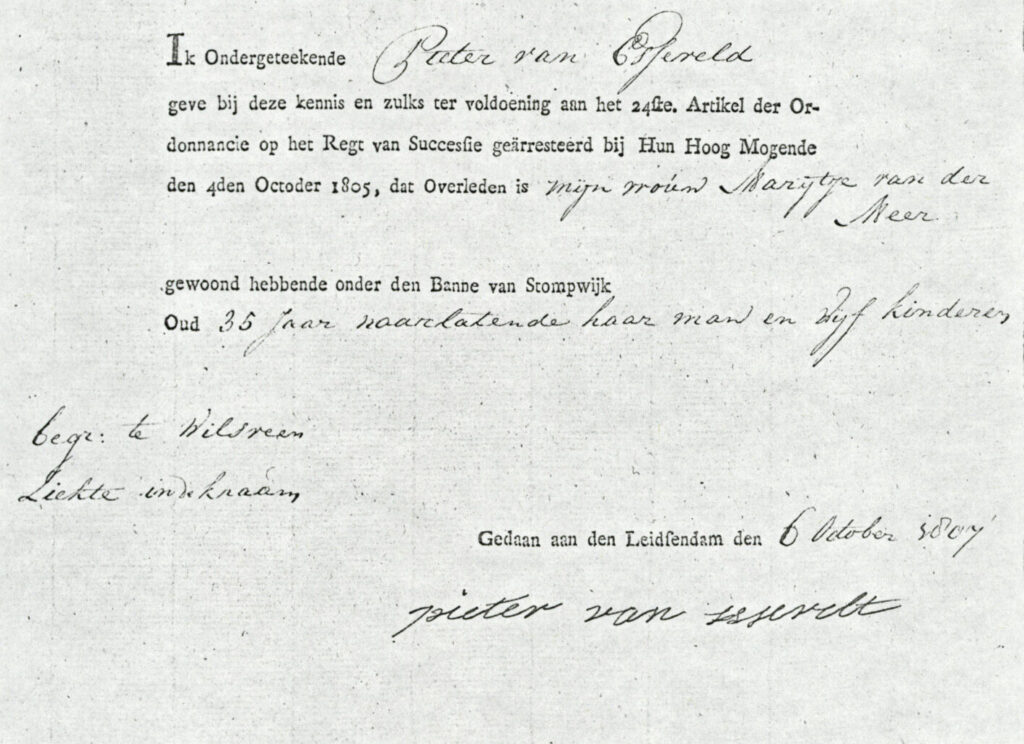 Ik Ondergeteekende Pieter van Esseveld
geve bij deze kennis en zulks ter voldoening aan het 24ste. Artikel der Or-
donnancie op het Regt van Successie geärresteerd bij Hun Hoog Mogende
den 4den Octoder 1805, dat Overleden is mijn vrouw Marijtje van der
Meer
gewoond hebbende onder den Banne van Stompwijk
Oud 35 Jaar naarlatende haar man en Vijf kinderen
begr: te Wilsveen
Ziekte indeknaam
Gedaan aan den Leidsendam den 6 October 1807
pieter van esseveldt